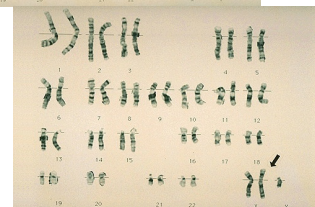 1 2 3 4 5
6 7 8 9 10 11 12
13 14 15 16 17 18
19 20 21 22 Y